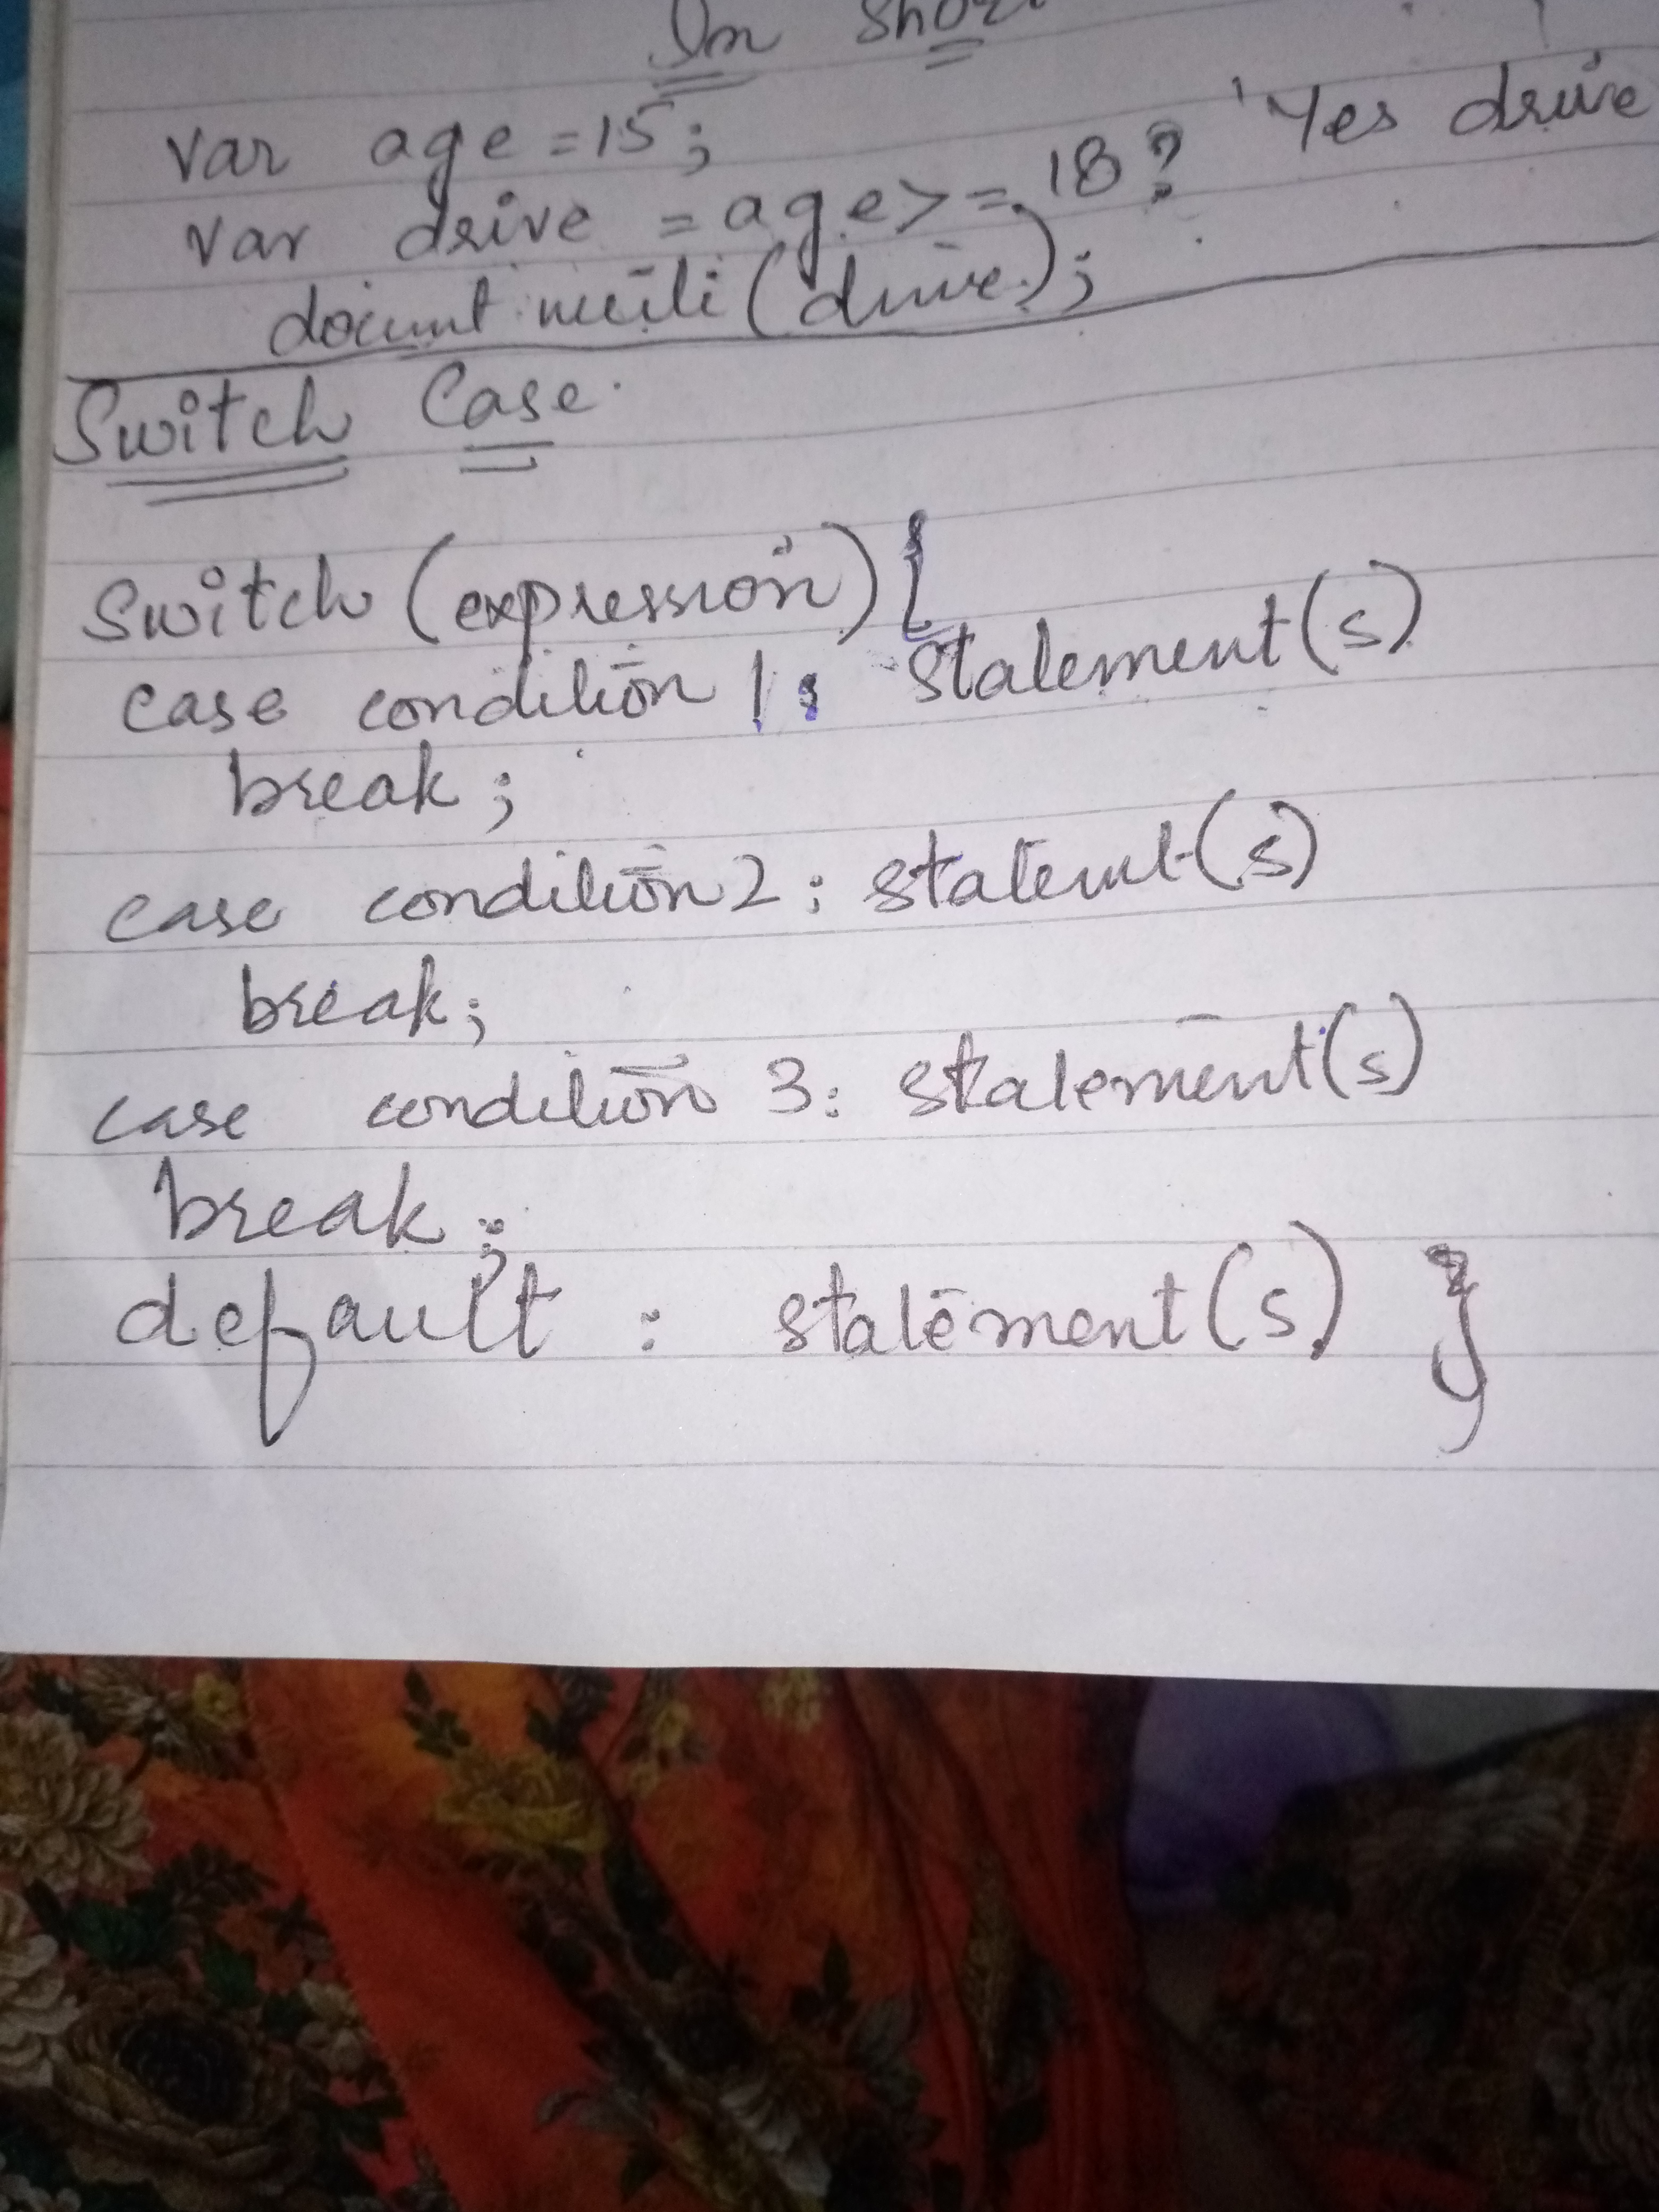 In Shor
var age = 15;
var drive = age >= 18? 'Yes drive
(drive);
Switch Case.
Switch (expression) {
case condition 1: statement(s)
break;
case condition 2: statemt(s)
break;
case condition 3: statement(s)
break;
default : statement(s) }